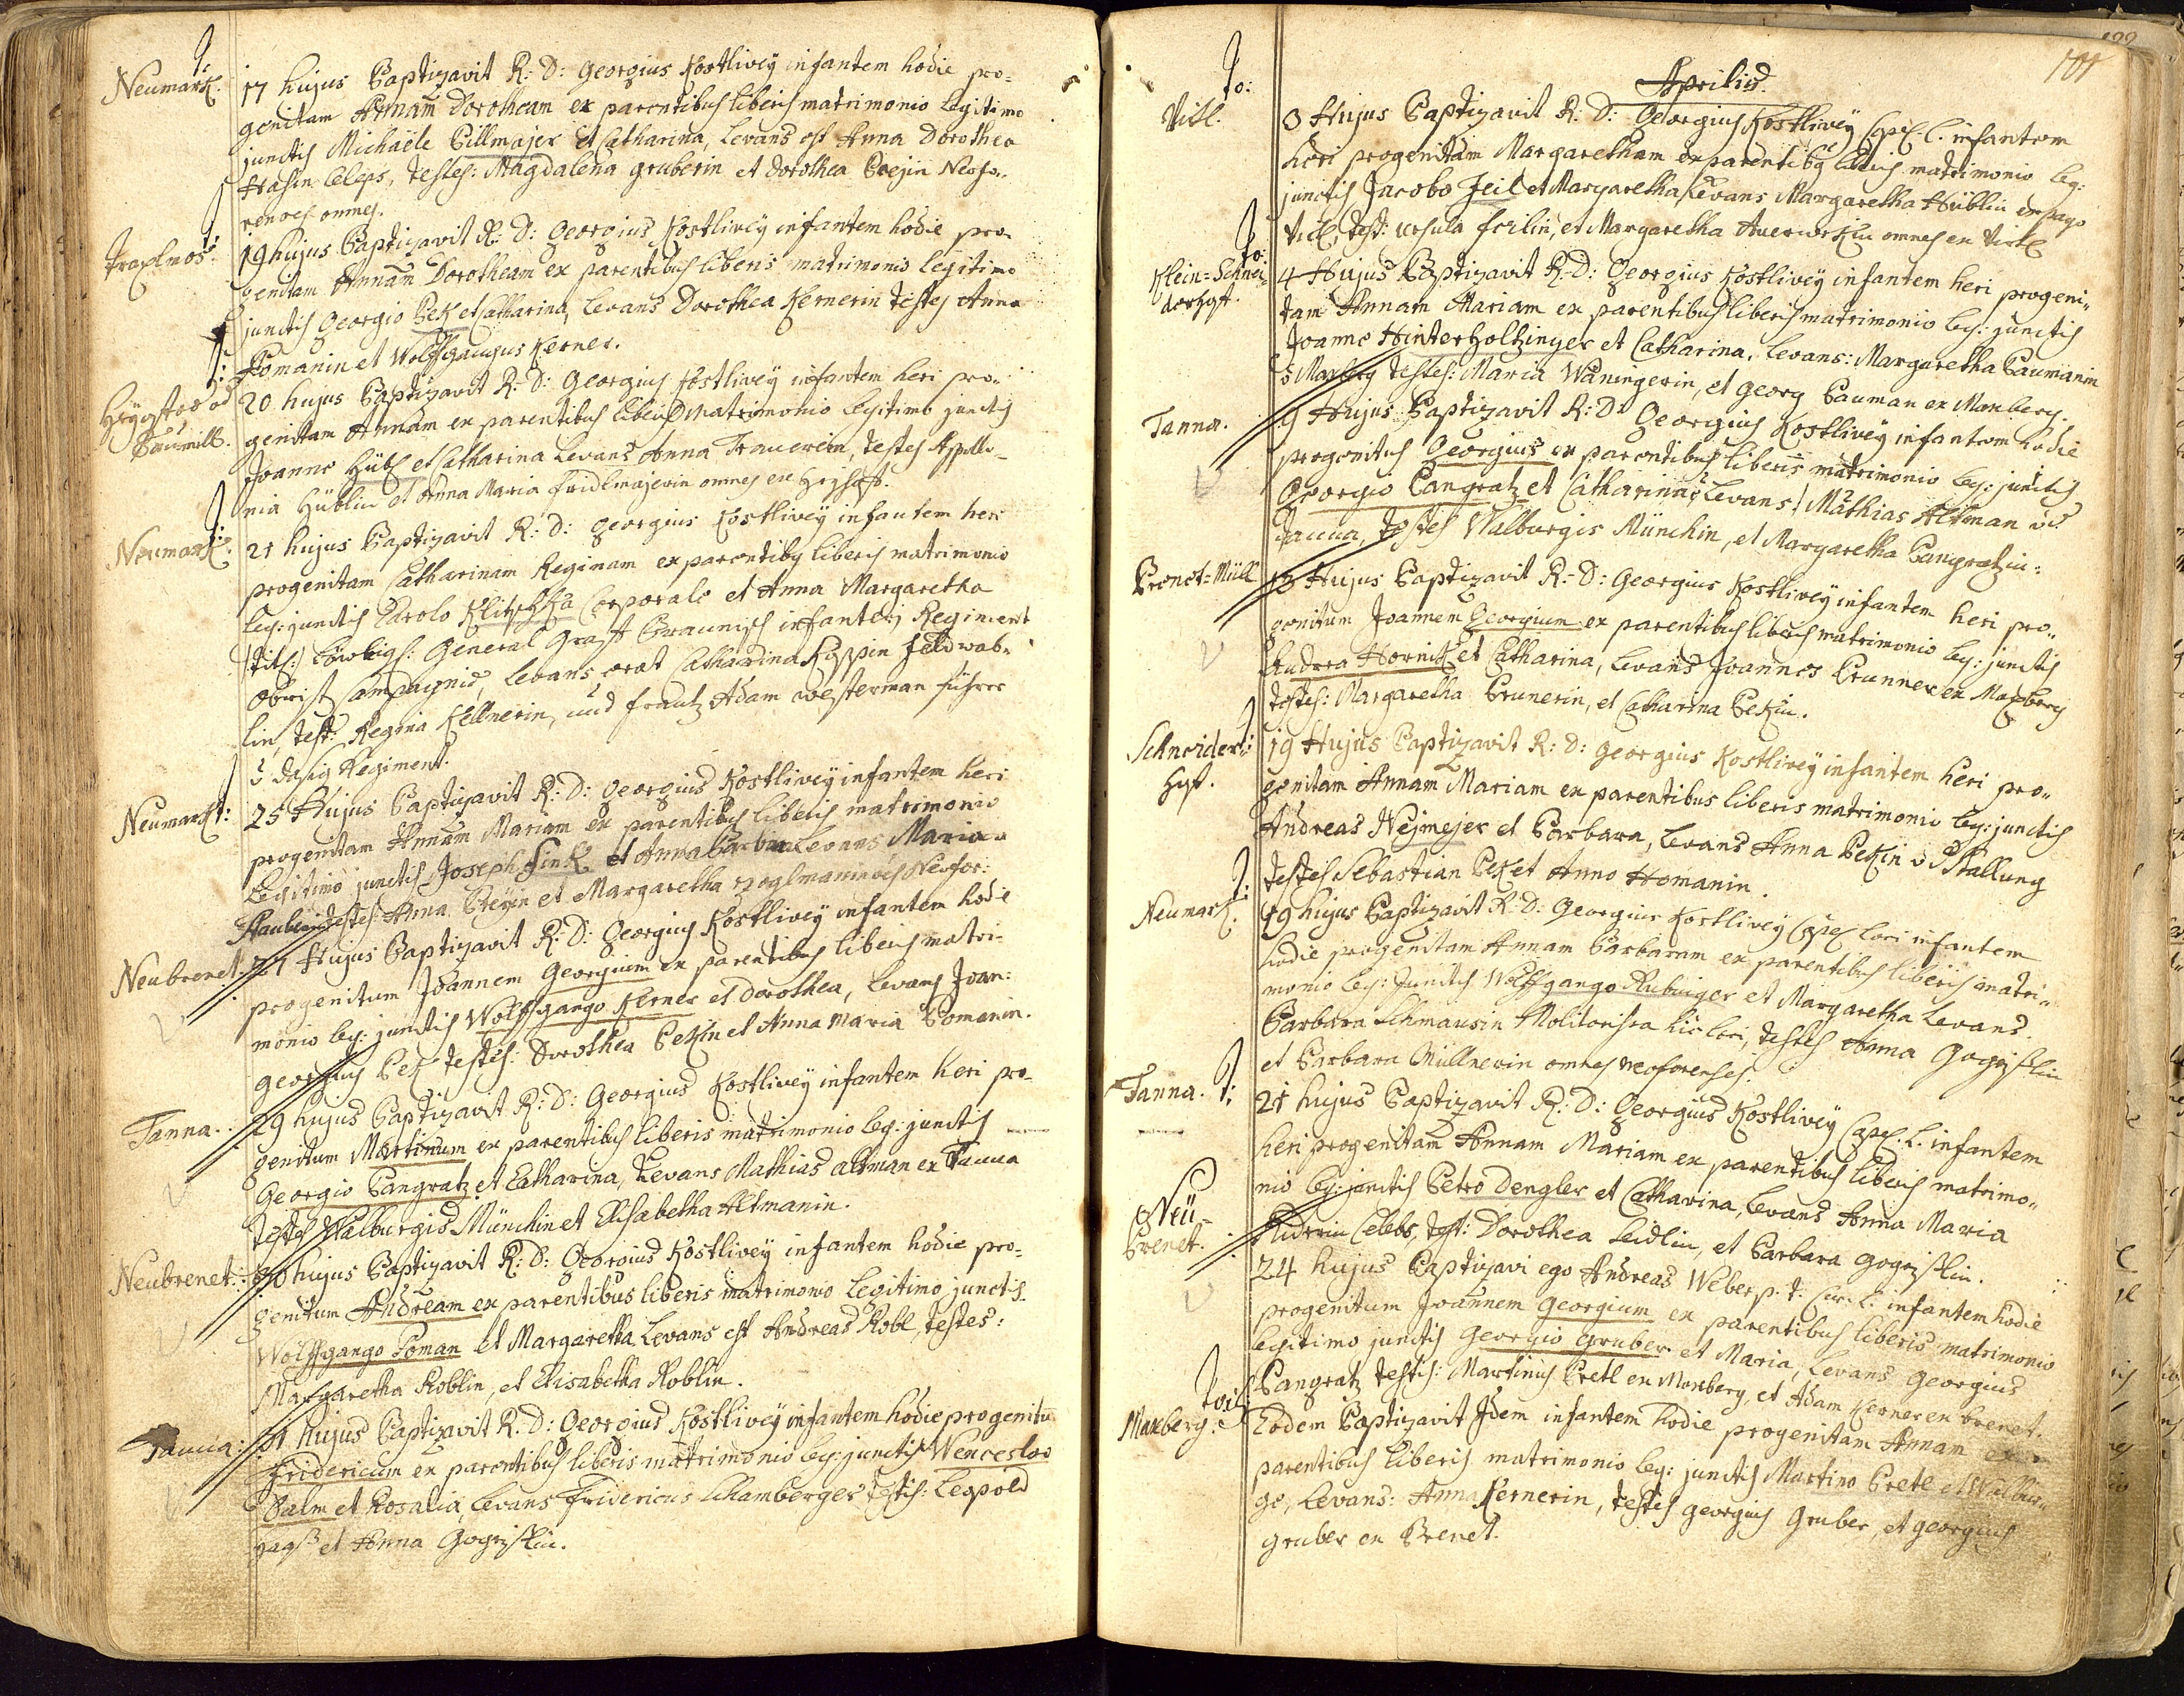 Neumark.
17 hujus Baptizavit R: D: Georgius Kostlivÿ infantem hodie pro-
genitam Annam Dorotheam ex parentibus liberis matrimonio legitimo
junctis Michaële Billmajer et Catharina, Levans est Anna Dorothea
celeps, testes: Magdalena Gruberin et Dorothea Neofo-
renses omnes.
19 hujus Baptizavit R: D: Georgius Kostlivÿ infantem hodie pro-
genitam Annam Dorotheam ex parentibus liberis matrimonio legitimo
junctis Georgio Bek et Catharina, Levans Dorothea Kernerin testes Anna
Pomanin et Wolffgangus Kerner.
20 hujus Baptizavit R: D: Georgius Kostlivÿ infantem heri pro-
genitam Annam ex parentibus liberis Matrimonio legitimo junctis
Joanne Hübl et Catharina Levans Anna Trauerin, testes Apollo-
nia Hüblin et Anna Maria Fridlmajerin omnes ex
Neumark:
21 hujus Baptizavit R: D: Georgius Kostlivÿ infantem heri
progenitam Catharinam Reginam ex parentibus liberis matrimonio
leg: junctis Carolo Klitschka Corporale et Anna Margaretha
General Graff Braunisch infanterj Regiment
Obrist Compagnie, Levans erat Catharina Feldwab-
lin, test: Regina Kellnerin, und Frantz Adam Westerman führer
Regiment.
Neumark:
25 Hujus Baptizavit R: D: Georgius Kostlivÿ infantem heri
progenitam Annam Mariam ex parentibus liberis matrimonio
Legitimo junctis Joseph Fink et Anna Barbara Levans Maria
testes: Anna et Margaretha Neofor:
Neubrenet:
27 Hujus Baptizavit R: D: Georgius Kostlivÿ infantem hodie
progenitum Joannem Georgium ex parentibus liberis matri-
monio leg: junctis Wolffgango Kerner et Dorothea, Levans Joan:
Georgius Bek testes: Dorothea Bekin et Anna Maria Pomanin.
Tanna.
29 hujus Baptizavit R: D: Georgius Kostlivÿ infantem heri pro-
genitum Martinum ex parentibus liberis matrimonio leg: junctis
Georgio Pangratz et Catharina, Levans Mathias Altman ex Tanna
testes Walburgis Münchin et Elisabetha Altmanin.
Neubrenet:
30 hujus Baptizavit R: D: Georgius Kostlivÿ infantem hodie pro-
genitum Andream ex parentibus liberis matrimonio Legitimo junctis
Wolffgango Poman et Margaretha Levans est Andreas Robl, testes:
Margaretha Roblin, et Elisabetha Roblin.
Tanna:
31 hujus Baptizavit R: D: Georgius Kostlivÿ infantem hodie progenitū
Fridericum ex parentibus liberis matrimonio leg: junctis Wenceslao
Salm et Rosalia, Levans Fridericus Schamberger testes: Leopold
et Anna
101
Aprilis.
Vitl.
3 Hujus Baptizavit R: D: Georgius Kostlivÿ Capel. l. infantem
heri progenitam Margaretham ex parentibus liberis matrimonio leg:
junctis Jacobo Zeil et Margaretha, Levans Margaretha Hüblin ex pago
test: Ursula et Margaretha omnes ex
Klein=Schnei-
derhoff.
4 Hujus Baptizavit R: D: Georgius Kostlivÿ infantem heri progeni-
tam Annam Mariam ex parentibus liberis matrimonio leg: junctis
Joanne Hinterholtzinger et Catharina, Levans: Margaretha Baumanin
testes: Maria Waningerin, et Georg Bauman ex Maxberg.
Tanna.
9 Hujus Baptizavit R: D: Georgius Kostlivÿ infantem hodie
progenitus Georgius ex parentibus liberis matrimonio leg: junctis
Georgio Pangratz et Catharina, Levans: Mathias Altman
Tanna, testes Walburgis Münchin, et Margaretha Pangratzin.
Brenet=Müll
Hujus Baptizavit R: D: Georgius Kostlivÿ infantem heri pro-
genitum Joannem Georgium ex parentibus liberis matrimonio leg: junctis
Andrea Hornik et Catharina, Levans Joannes Brunner ex Maxberg
testes: Margaretha Brunerin, et Catharina Bekin.
Schneider-
hoff.
19 Hujus Baptizavit R: D: Georgius Kostlivÿ infantem heri pro-
genitam Annam Mariam ex parentibus liberis matrimonio leg: junctis
Andreas Nejmejer et Barbara, Levans Anna Bekin Stallung
testes Sebastian Bek et Anna Homanin.
Neumark.
19 hujus Baptizavit R: D: Georgius Kostlivÿ Capel. loci infantem
hodie progenitam Annam Barbaram ex parentibus liberis matri-
monio leg: junctis Wolffgango Rubinger et Margaretha Levans
Barbara Schmausin hic loci, testes Anna
et Barbara Müllnerin omnes neoforenses.
Tanna.
21 hujus Baptizavit R: D: Georgius Kostlivÿ Capel. l. infantem
heri progenitam Annam Mariam ex parentibus liberis matrimo-
nio leg: junctis Petro Dengler et Catharina, Levans Anna Maria
celebs, test: Dorothea Seidlin, et Barbara
Neü-
Brenet.
24 hujus Baptizavi ego Andreas Weber p: t: Cur: l: infantem hodie
progenitum Joannem Georgium ex parentibus liberis matrimonio
legitimo junctis Georgio Gruber et Maria, Levans Georgius
Pangratz testes: Martinus Pretl ex Maxberg, et Adam Kerner ex brenet.
Maxberg:
Eodem Baptizavit Idem infantem hodie progenitam Annam ex
parentibus liberis matrimonio leg: junctis Martino Pretl et Walbur-
ge, Levans: Anna Kernerin, testes Georgius Gruber, et Georgius
Gruber ex Brenet.